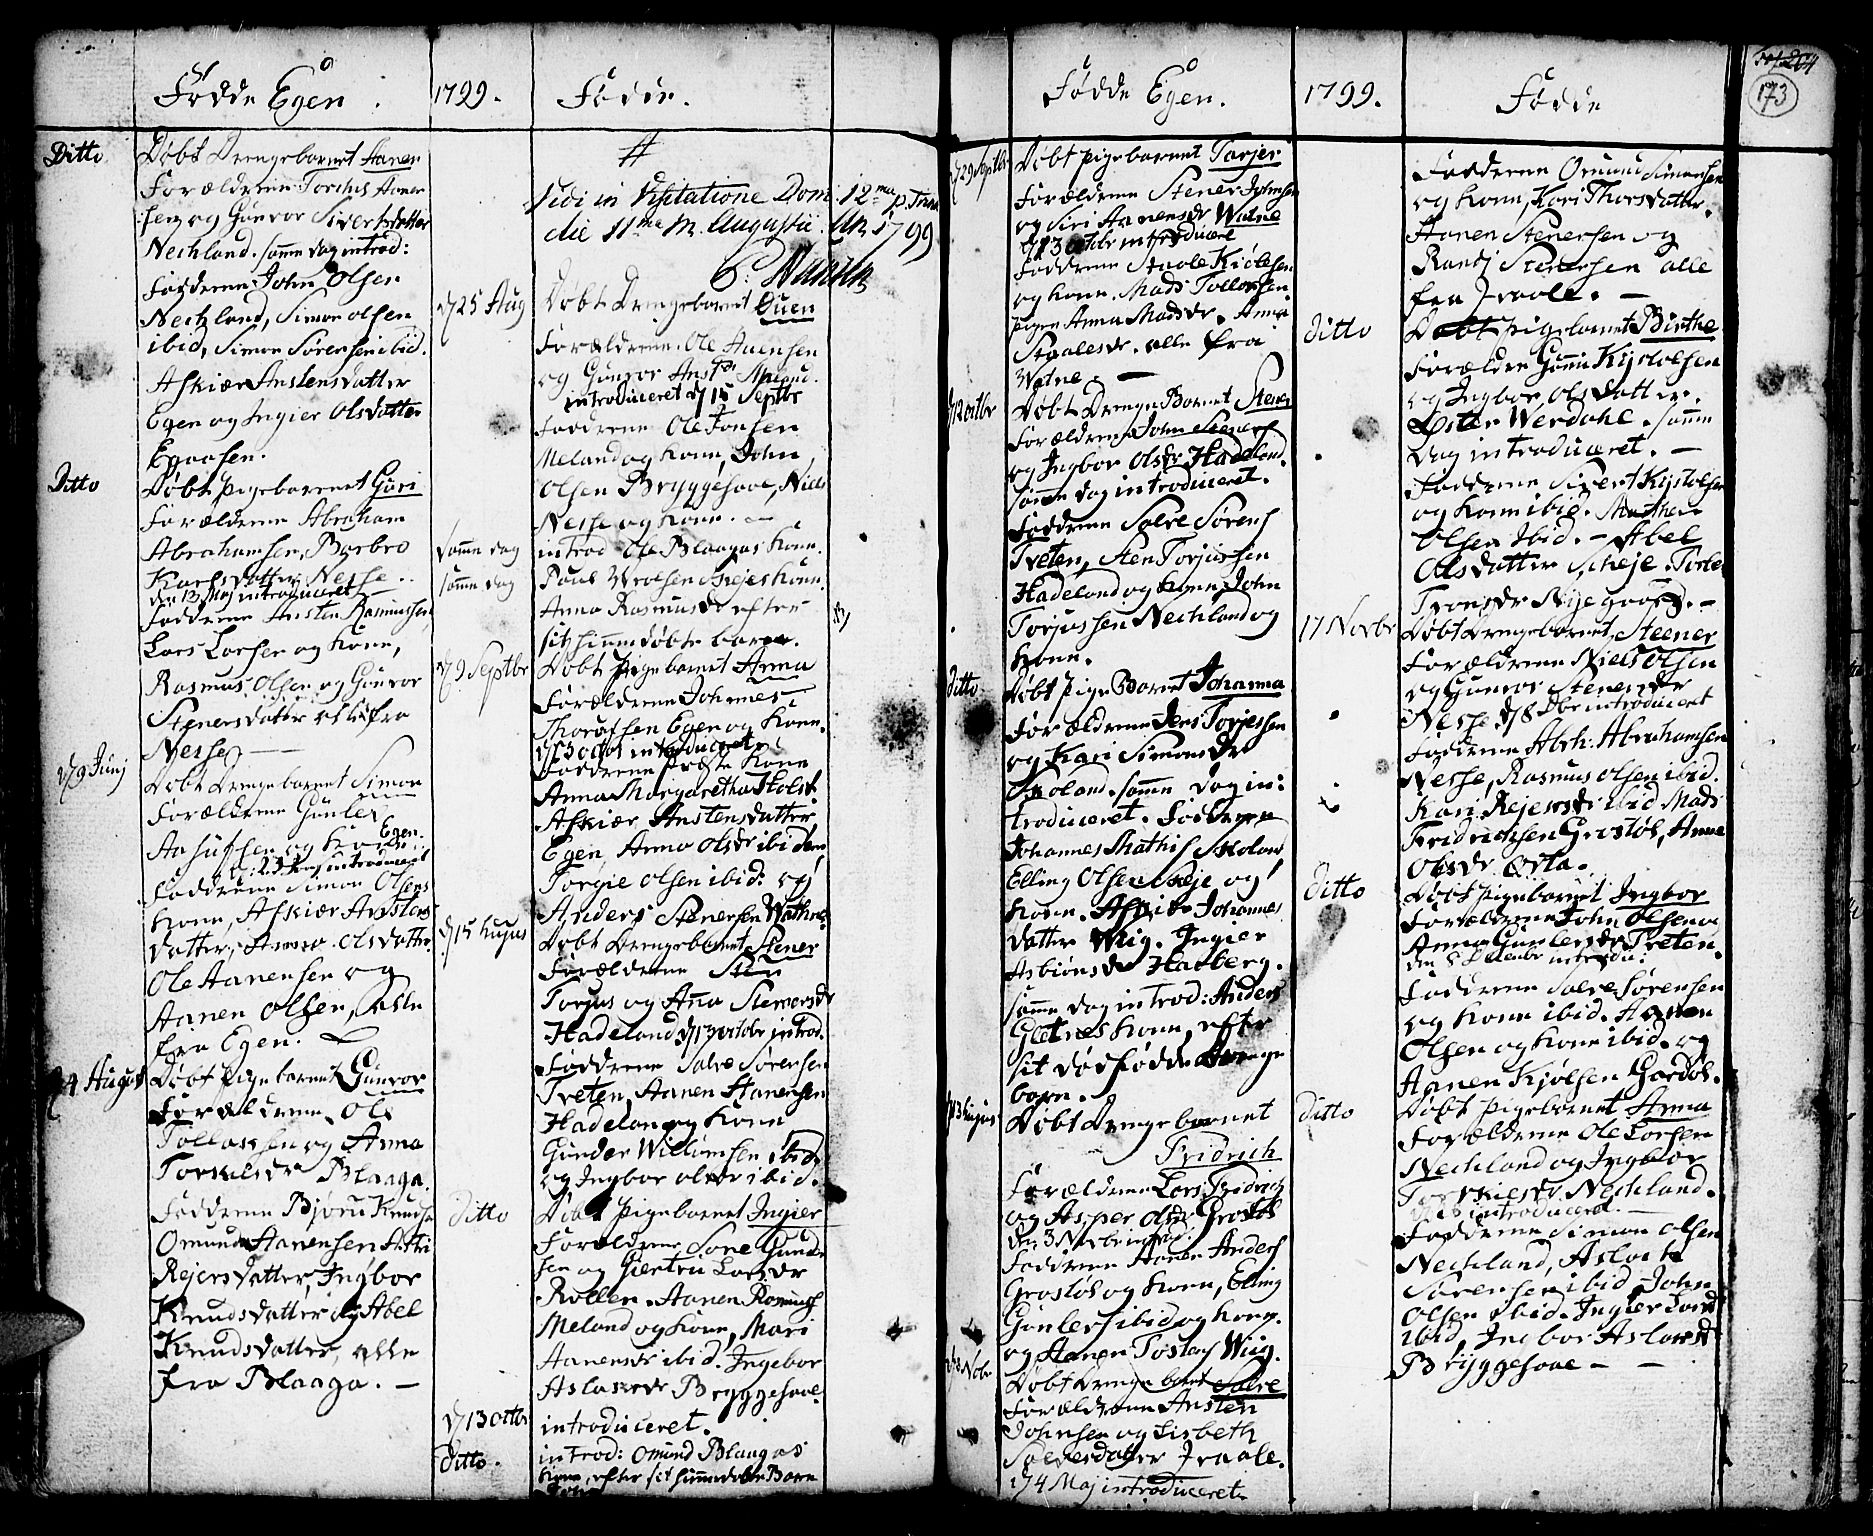 Fødde Egen.
1799.
Fødde.
Ditto
Døbt Drengebarnet Aanen
Forældrene Torchis Aaner
sen og Gunvor Sivertsdatter
Nechland. samme dag introd:
Fadderne John Olsen
Nechland, Simon olsen
ibid, Simon Sørensen ibid.
Askiær Anstensdatter
Egen og Ingier Olsdatter
Egaasen.
Ditto
Døbt pigebarnet Guri
Forældrene Abraham
Abrahamsen, Barbro
Karlsdatter Nesse.
den 13 Maj introduceret
Fadderne Ansten Rasmussen
Lars Larsen og Kone,
Rasmus Olsen og Gunvor
Stenersdatter alle fra
Nesse
d 9 Junj
Døbt Drengebarnet Simon
Forældrene Gunler
Aasulfsen og
Egen.
introduceret
Fadderne Simon Olsens
Kone, Askiær Anstens
datter, Anna Olsdatter,
Ole Aanensen og
Aanen Olsen, alle
fra Egen.
4 August
Døbt Pigebarnet Gunvor
Forældrene Ole
Tollaksen og Anna
Torkelsdr Blaaga.
Fadderne Bjørn Knudsen
Omund Aanensen
Rejersdatter, Ingbor
Knudsdatter og Abel
Knudsdatter, alle
fra Blaaga.
#
Vidi in Visitatione Dom. 12ma p. Trin.
die 11me M. Augustii. An. 1799
d 25 Aug
Døbt Drengebarnet Ouen
Forældrene Ole Auensen
og Gunvor Anstdr
introduceret d 15 Septbr
Fadderne Ole Jonsen
Meland og Kone, John
Olsen Bryggesaae, Niels
Nesse og Kone.
samme dag
introd Ole Blaagas Kone.
samme dag
Poul Wrolsen Skejes Kone
Anna Rasmusdr efter
sit hiemmedøbte barn.
d 9 Septbr
Døbt Pigebarnet Anna
Forældrene Johannes
Thoralfsen Egen og Kone
d 13 octbr introduceret
Fadderne Præste Kone
Anna Margaretha Holst
Askiær Anstensdatter
Egen, Anna Olsdr ibidem
Torgie Olsen ibid: og
Anders Stenersen Wathne
d 15 hujus
Døbt Drengebarnet Stener
Forældrene Sten
Torjus og Ana Stenersdr
Hadeland d 13 octobr introd.
Fadderne Salve Sørensen
Tveten, Aanen Aanensen
Hadeland og Kone
Gunder Willumsen ibid,
og Ingbor olsdr ibid.
Ditto
Døbt Pigebarnet Ingier
Forældrene Sone Gunder
sen og Giertru Larsdr
Røllen. Aanen Romundss
Meland og Kone, Mari
Aanensdr ibid. Ingebor
Aslaksdr Bryggesaae
d 13 octbr
introduceret.
Ditto.
introd: Omund Blaagas
Kone, efter sit hiemmedøbte Barn
Fødde Egen.
1799.
Fødde
173
d 29 Septbr
Døbt pigebarnet Torjer
Forældrene Stener Johnsen
og Siri Aanensdr Watne
d 13 octbr introduceret
Fadderne Staale Kiølesen
og Kone. Mads Tollavsen.
pigen Anna Madsdr. Anna
Staalesdr. alle fra
Watne.
d 12 octbr
Døbt Drenge Barnet Stener
Forældrene John Stenerss
og Ingbor Olsdr Hadeland.
samme dag introduceret.
Fadderne Salve Sørenss
Tveten, Sten Torjussen
Hadeland og Kone. John
Torjussen Nechland og
Kone.
ditto
Døbt Pige Barnet Johanna
Forældrene Jens Torjessen
og Kari Simonsdr
Skoland. samme dag in:
troduceret. Fadderne
Johannes Mathiss Skoland
Elling Olsen Skeje og
Kone. Johannes
datter Wiig. Ingier
Asbiønsdr Hadberg.
samme dag introd: Anders
Gletnes Kone, efter
sit dødfødde Drenge
barn.
d 13 hujus
Døbt Drengebarnet
Fridrich
Forældrene Lars Fridrich
og Asper Olsdr Grostøl
den 3 Novbr introd:
Fadderne Aanen Anderss
Grostøl og Kone, Elling
Gunlerss ibid og Kone.
og Aanen Tostens Wiig.
d 3 Nobr
Døbt Drenge barnet Salve
Forældrene Ansten
Johnsen og Lisbeth
Salvesdatter Jraale.
d 4 Maj introduceret
Fadderne Omund Simonsen
og Kone, Kari Thorsdatter.
Aanen Stenersen og
Randi Stenersen alle
fra Jraale.
ditto
Døbt pigebarnet Birthe
Forældre Gunni Kjstolsen
og Ingbor Olsdatter.
Øster Werdahl. samme
Dag introduceret.
Fadderne Sivert Kjstolsen
og Kone ibid.
Olsen Ibid. Abel
Olsdatter Skeje. Torbor
Tronsdr Nijegaard.
17 Novbr
Døbt Drengebarnet Steener
Forældrene Niels Olsen
og Gunvor Stenersdr
Nesse. d 8 Dbr introduceret
Fadderne Abrh: Abrahamsen
Nesse, Rasmus olsen ibid.
Kari Rejersdr ibid Mads
Fridrichsen Grostøl, Anna
Olsdr Østa.
Ditto
Døbt pigebarnet Ingbor
Forældrene John Olsen og
Anna Gunlersdr Tveten.
den 8 Decembr introdu:
Fadderne Salve Sørensen
og Kone ibid. Aanen
Olsen og Kone ibid. og
Aanen Kjølsen Gordøl.
Ditto
Døbt Pigebarnet Anna
Forældrene Ole Larsen
Nechland og Ingbor
Torkielsdr Nechland.
introduceret.
Fadderne Simon olsen
Nechland, Aslach
Sørensen ibid, John
Olsen ibid. Ingier
ibid, Ingbor Aslaksdr
Bryggesaae